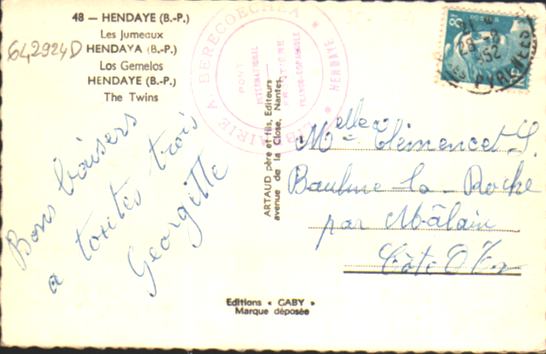 48 — HENDAYE (B.-P.)
Les Jumeaux
HENDAYA (B.-P.)
Los Gemelos
HENDAYE (B.-P.)
The Twins
642924D
Bons baisers
a toutes trois
Georgette
LIBRAIRIE A. BERECOECHEA
* HENDAYE *
PONT
INTERNATIONAL
FRANCO-ESPAGNOLE
ARTAUD père et fils, Editeurs
avenue de la Close, Nantes
8F
28-8
1952
PYRENEES
Melles Clémencet S.
Baulme-la-Roche
par Mâlain
Côte D'Or
Editions " GABY "
Marque déposée